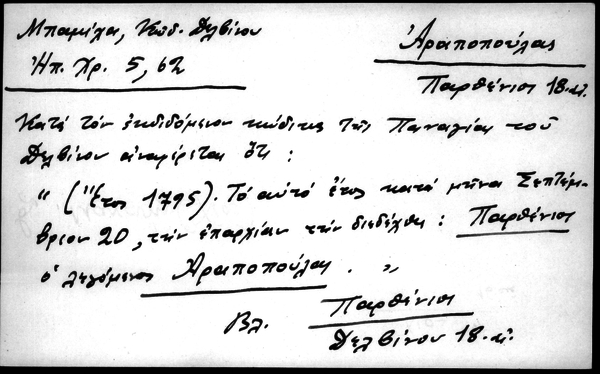 Μπαμίχα, Κώδ. Δελβίνου
Ἠπ. Χρ. 5, 62
Ἀραποπούλας
Παρθένιος 18. αἰ.
Κατά τόν ἐκδιδόμενον κώδικα τῆς Παναγίας τοῦ
Δελβίνου ἀναφέρεται ὅτι :
" (Ἔτος 1795). Τό αὐτό ἔτος κατά μῆνα Σεπτέμ-
βριον 20, τήν ἐπαρχίαν τήν διεδέχθη : Παρθένιος
ὁ λεγόμενος Ἀραποπούλας . "
Βλ. Παρθένιος
Δελβίνου 18. αἰ.